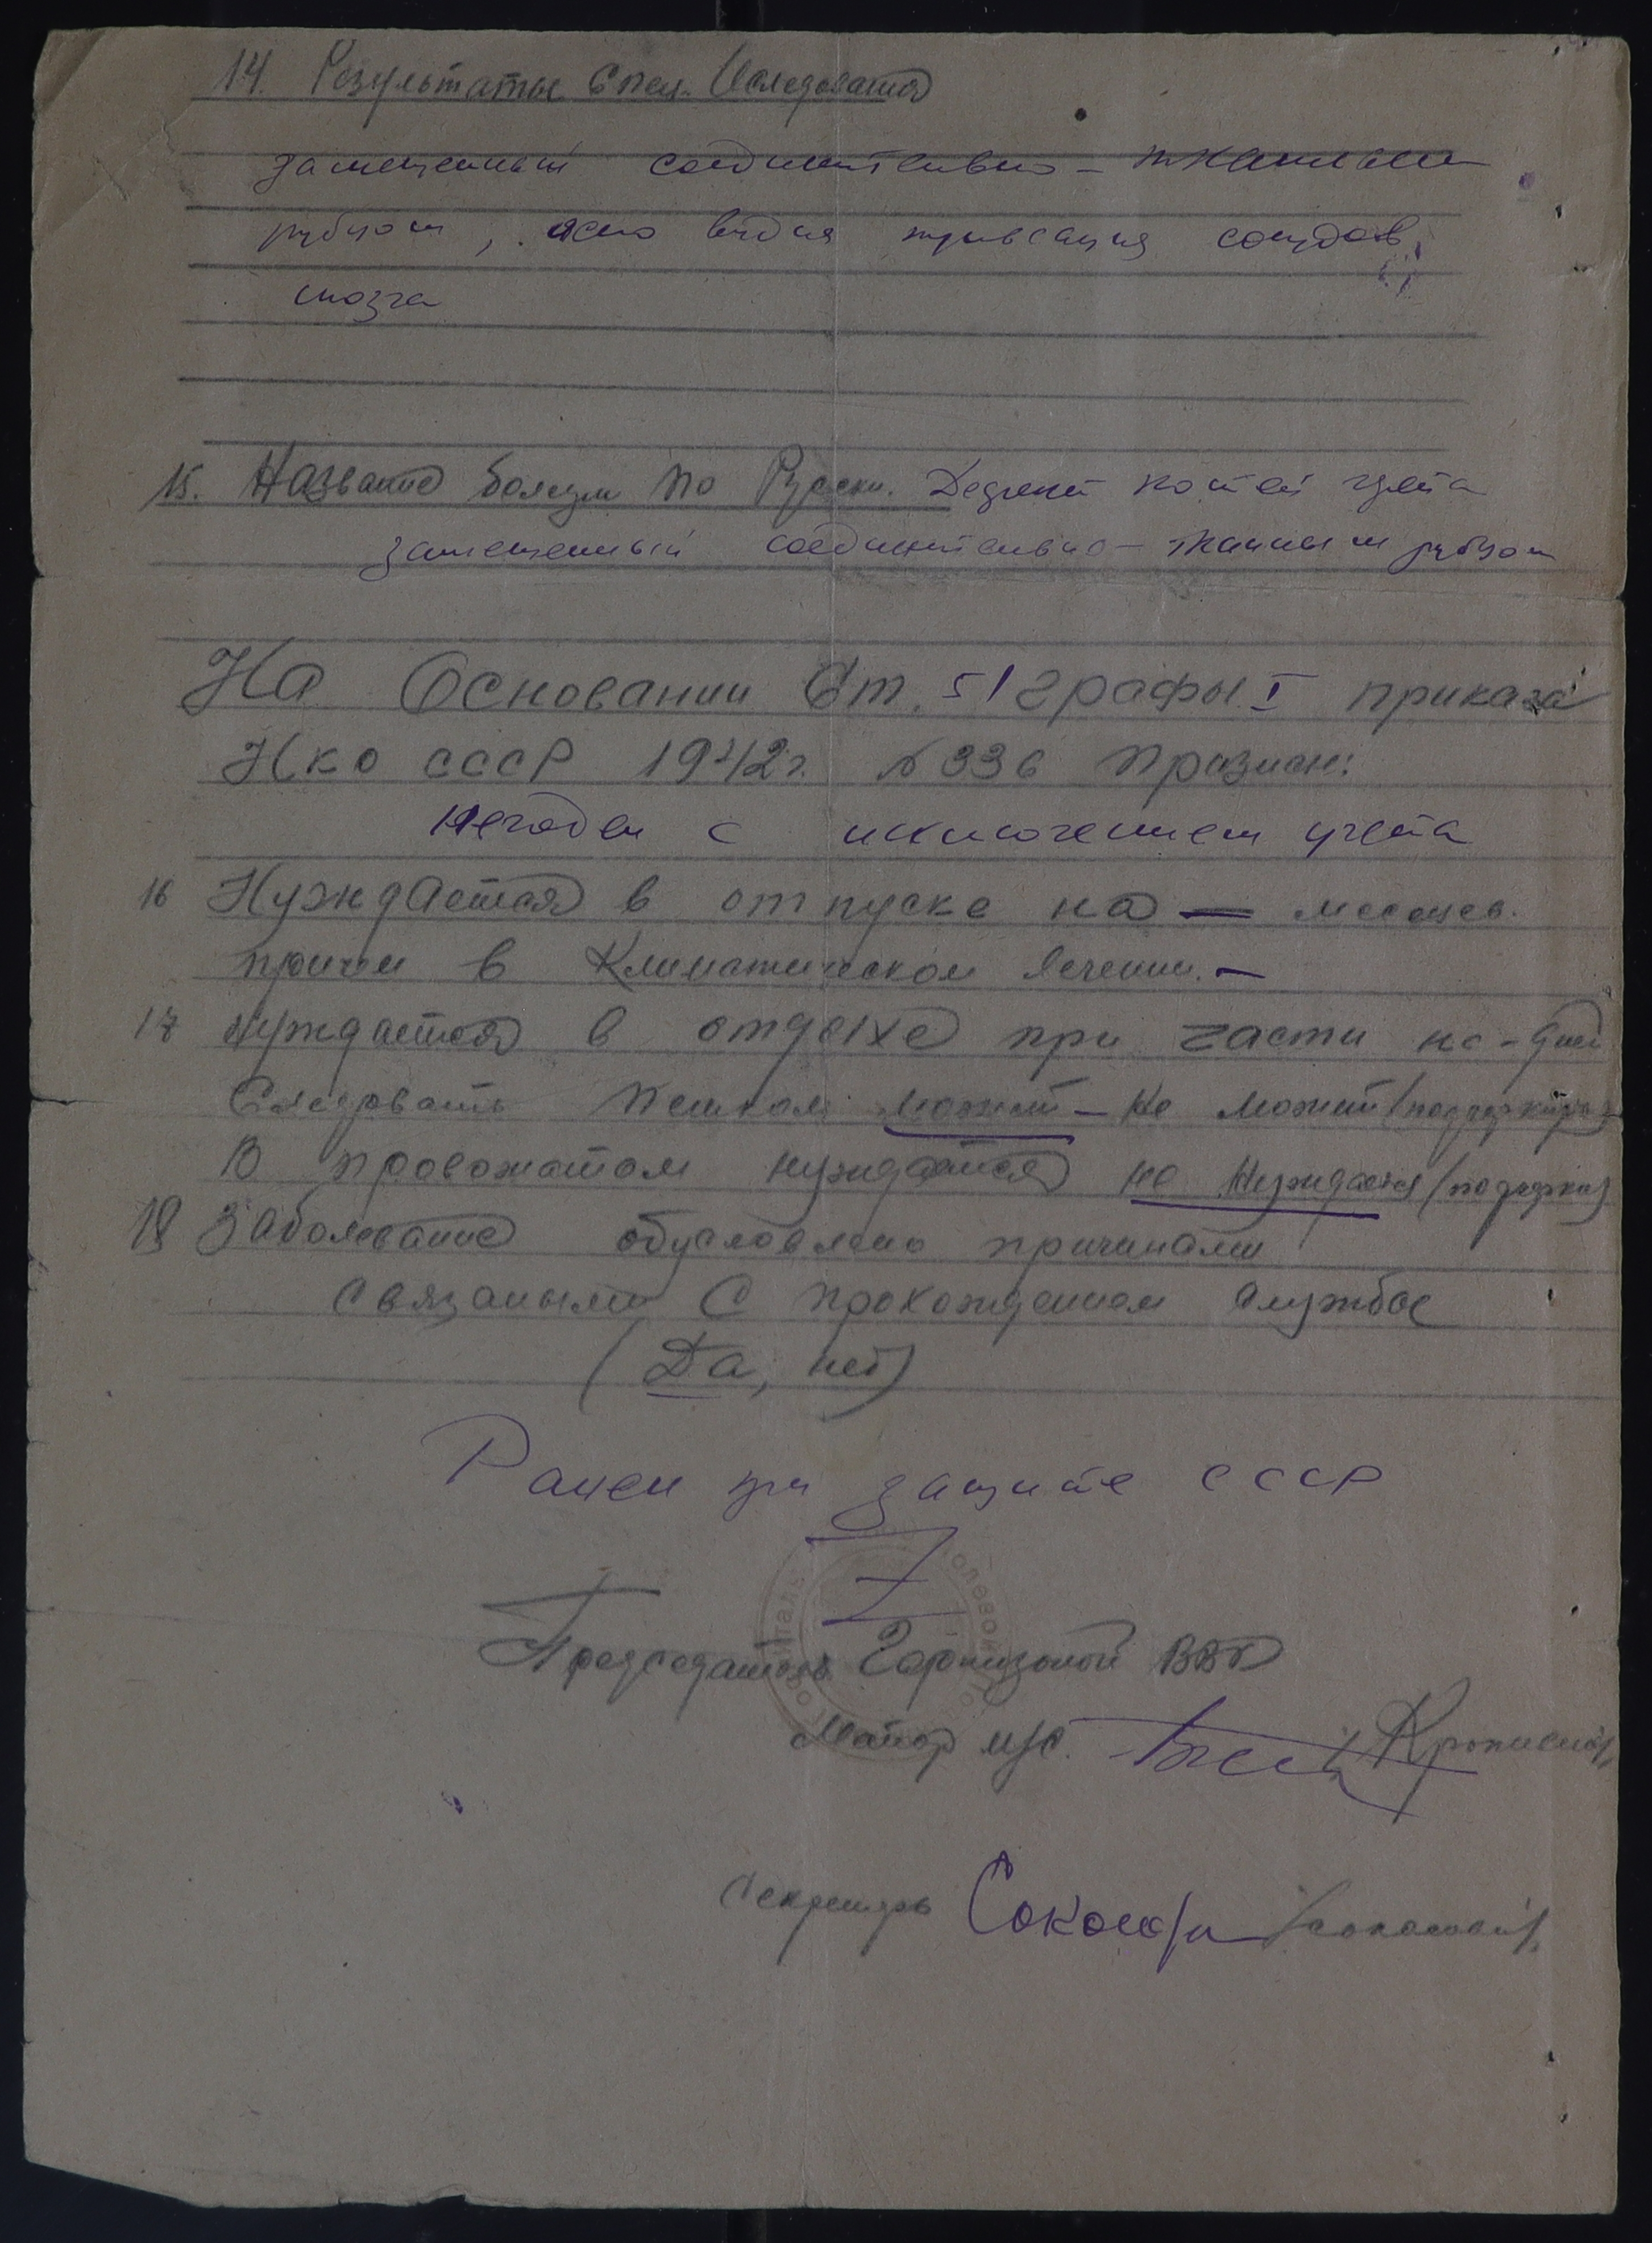 14. Результаты Спец. Иследования
замещенный соединительно - тканным
рубцом, ясно видна пульсация сосудов
мозга
15. Название болезни по Руски. Дефект костей черепа
замещенный соединительно - тканным рубцом
На Основании Ст. 51 графы I приказа
Нко СССР 1942г. № 336 Признан:
Негоден с исключением учета
16 Нуждается в отпуске на — месяцев.
причем в Климатическом лечении. —
17 нуждается в отдыхе при части на - дней
Следовать пешком может - не может (подчеркнуть)
В провожатом нуждается не нуждается (подчеркн)
18 Заболевание обусловлено причинами
связаными с прохождением службы
(Да, нет)
Ранен при защите СССР
Председатель Гарнизоной ВВК
Майор м/с.
Секретарь